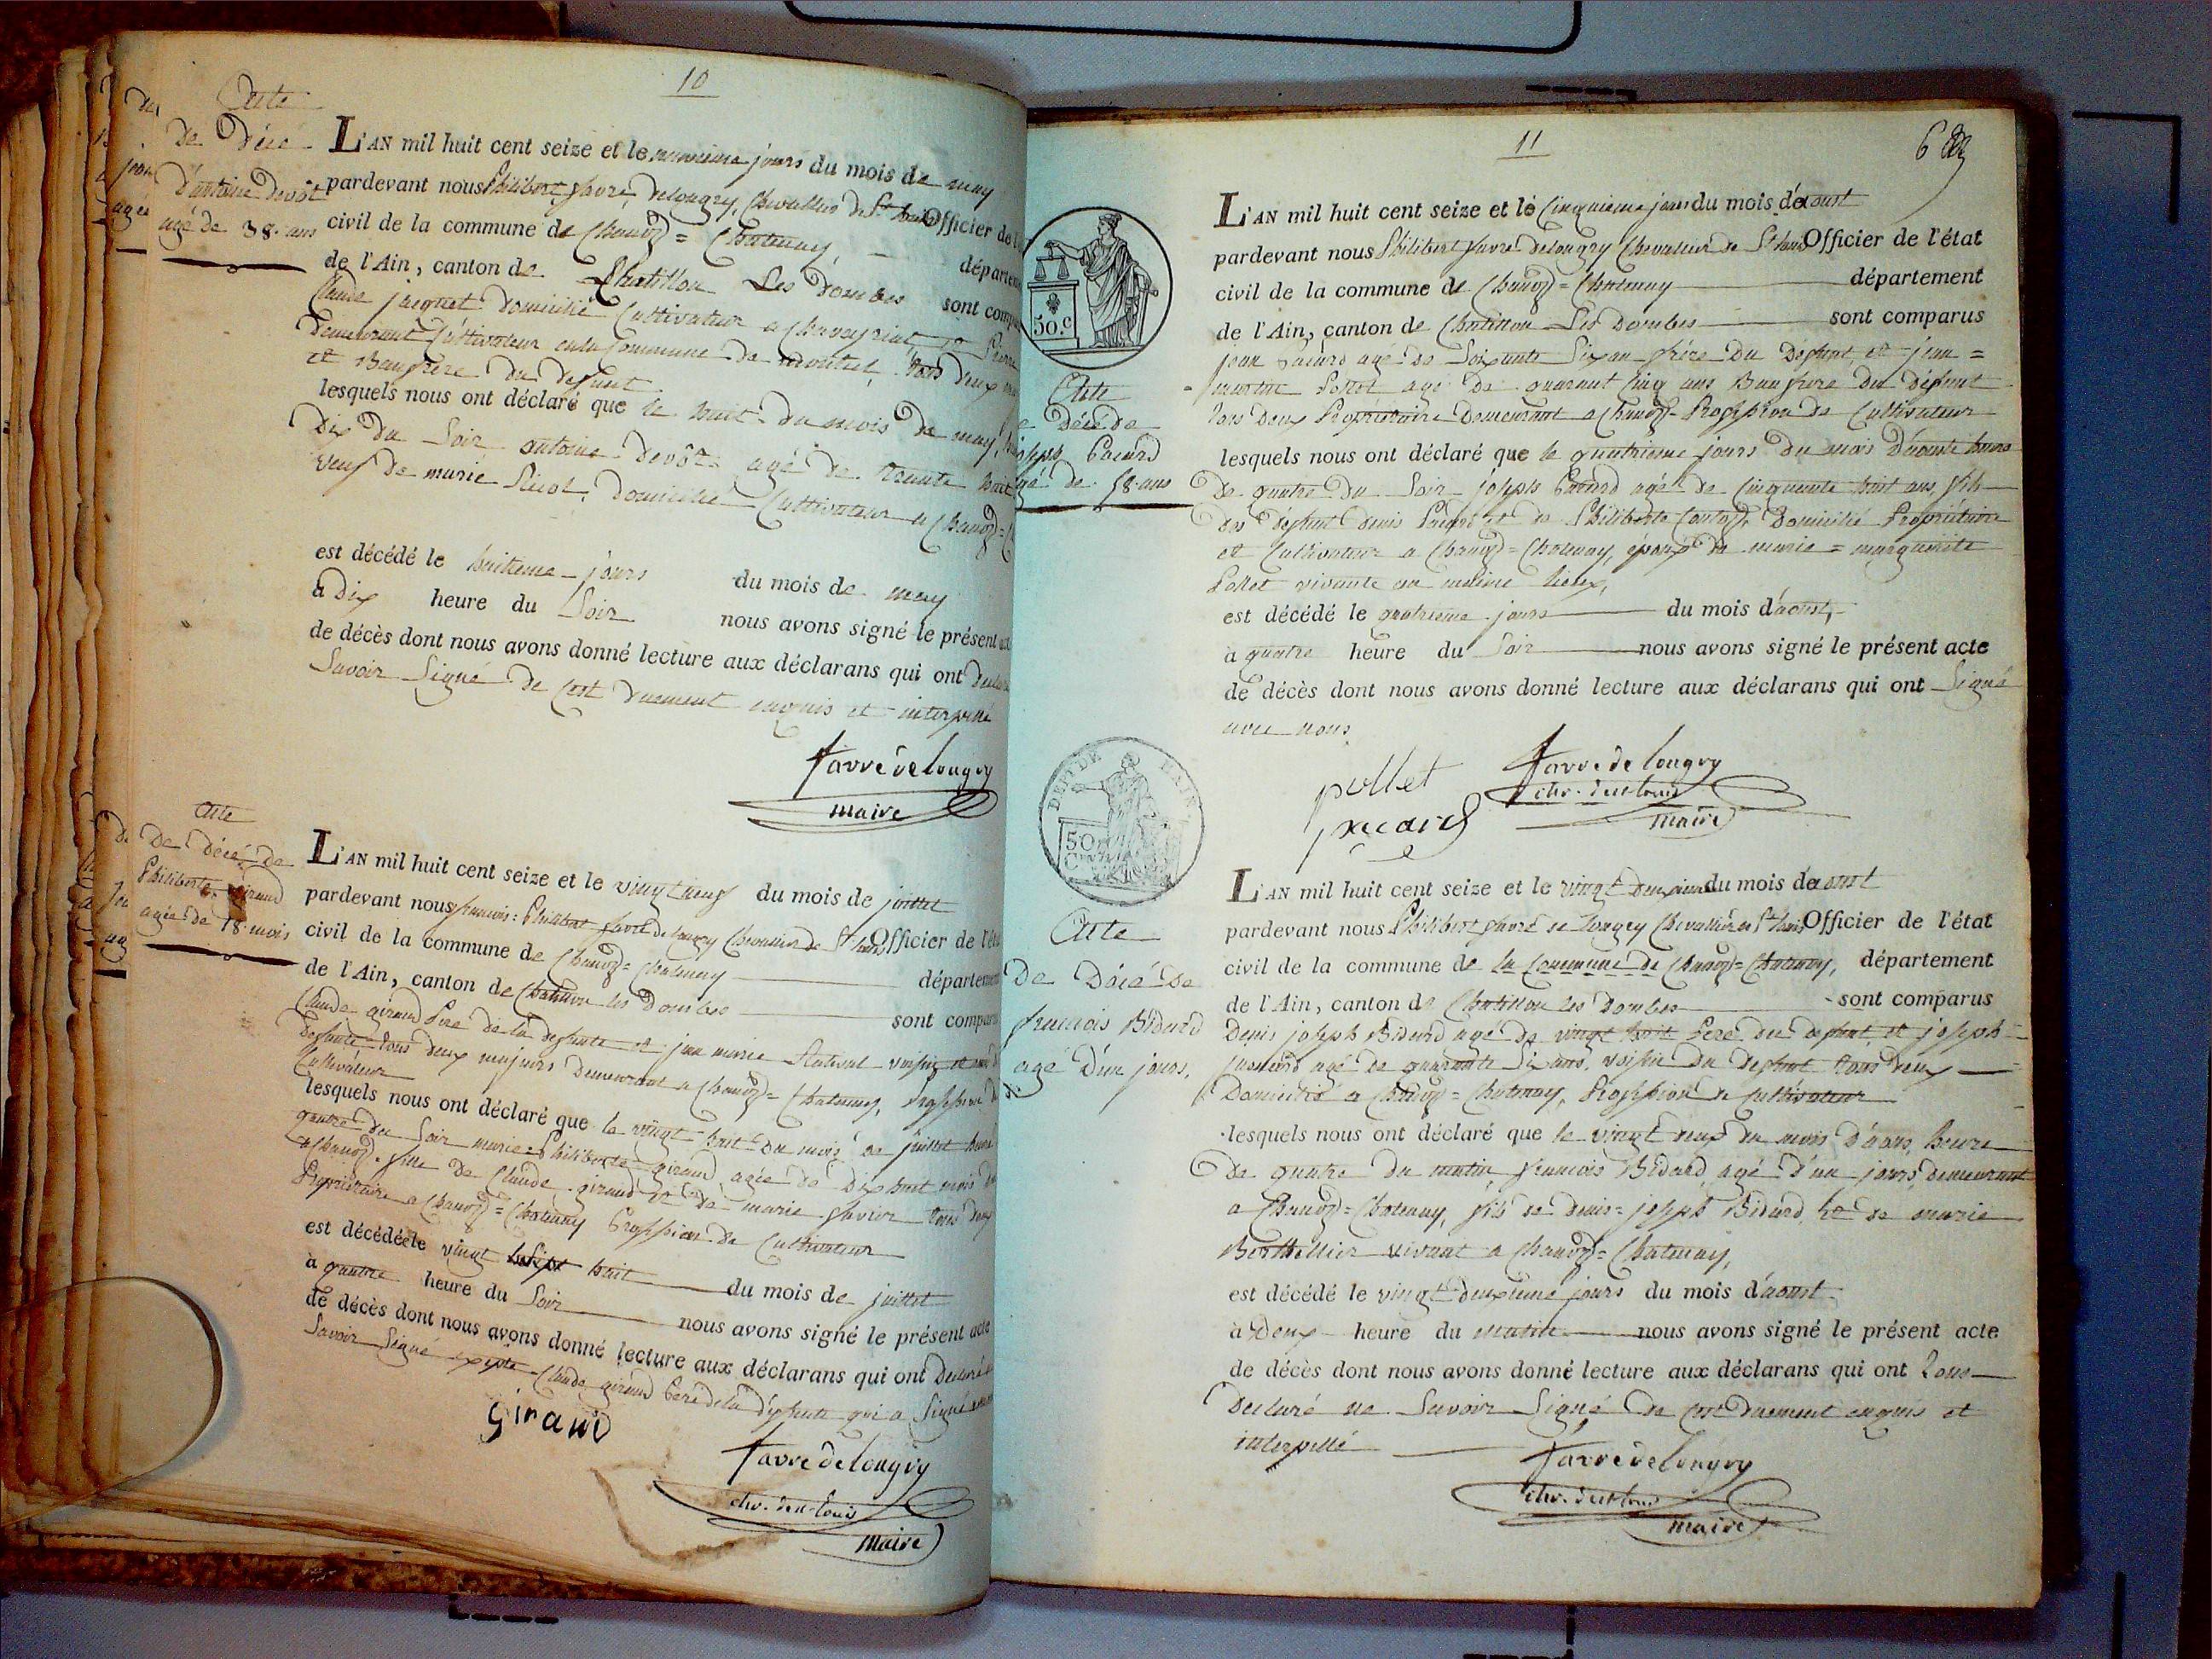 10
Acte
de Décé
d'antoine devôt
agé de 38. ans
L'AN mil huit cent seize et le neuvieme jours du mois de may
pardevant nous Philibert favre delongry, Chevallier de St Louis Officier de l'
civil de la commune de Chanoz = Chatenay, départem
de l'Ain, canton de Chatillon Les Dombes sont compa
Claude jacquet domicilié Cultivateur a Chaveyriat et Pierre
demeurant Cultivateur en la Commune de montcet, tous deux
et Baufrere du defunt
lesquels nous ont déclaré que le huit du mois de may,
Dix du Soir antoine devôt agé de trente huit
veuf de marie domicilié Cultivateur a Chanoz =
est décédé le huitieme jours du mois de may
à Dix heure du Soir nous avons signé le présent
de décès dont nous avons donné lecture aux déclarans qui ont
Savoir Signé de Cest duement enquis et interpellé
favre de longry
maire
Acte
De Décé de
Philiberte giraud
agée de 18. mois
L'AN mil huit cent seize et le vingt neuf du mois de juillet
pardevant nous francois = Philibert favre de longry Chevallier de St Louis Officier de l'éta
civil de la commune de Chanoz = Chatenay département
de l'Ain, canton de Chatillon les Dombes sont comparu
Claude giraud Pere de la defunte et jean marie voisin
defunte tous deux majeurs demeurant a Chanoz = Chatenay, Profession
Cultivateur
lesquels nous ont déclaré que le vingt huit du mois de juillet heure
quatre du Soir marie = Philiberte giraud, agée de Dix huit mois
a Chanoz. fille de Claude giraud et de marie tous deux
Propriétaire a Chanoz = Chatenay Profession de Cultivateur
est décédée le vingt huit du mois de juillet
à quatre heure du Soir nous avons signé le présent acte
de décès dont nous avons donné lecture aux déclarans qui ont Declaré
Savoir Signé Claude giraud Pere de la défunte qui a Signé
Giraud
favre de longry
chr. de st-louis
maire
11
6
50.c
Acte
e Décé de
oseph Pacard
gé de 58. ans
L'AN mil huit cent seize et le Cinquieme jours du mois d'aoust
pardevant nous Philibert favre delongry Chevallier de St Louis Officier de l'état
civil de la commune de Chanoz = Chatenay département
de l'Ain, canton de Chatillon Les Dombes sont comparus
jean Pacard agé de Soixante Six an frére Du Defunt et jean =
Pollet agé de quarant Cinq ans Baufrere du défunt
tous Deux Propriétaire Demeurant a Chanoz Profession de Cultivateur
lesquels nous ont déclaré que le quatrieme jours du mois D'aoust heure
De quatre du Soir joseph Pacard agé de Cinquante huit ans fils
des défunt denis Pacard et de Philiberte Domicilié Propriétaire
et Cultivateur a Chanoz = Chatenay, époux de marie = marguerite
Pollet vivante au meéme lieux,
est décédé le quatrieme jours du mois d'aoust,
à quatre heure du Soir nous avons signé le présent acte
de décès dont nous avons donné lecture aux déclarans qui ont Signé
avec nous
pollet
pacard
favre de longry
chr. de st-louis
maire
DEPT. DE L'AIN
50
Acte
De Décé de
francois Bidard
agé D'un jours,
L'AN mil huit cent seize et le vingt deuxieme du mois d'aoust
pardevant nous Philibert favre de longry Chevallier de St Louis Officier de l'état
civil de la commune de la Commune de Chanoz = Chatenay, département
de l'Ain, canton de Chatillon les Dombes sont comparus
Denis joseph Bidard agé de vingt huit Pere du defunt, et joseph
agé de quarante Six ans, voisin du defunt tous deux
Domicilié a Chanoz = Chatenay, Profession de Cultivateur
lesquels nous ont déclaré que le vingt deux du mois D'aous, heure
De quatre du matin, francois Bidard, agé d'un jours, demeurant
a Chanoz = Chatenay, fils de denis = joseph Bidard et de marie
Berthellier vivant a Chanoz = Chatenay,
est décédé le vingt deuxieme jours du mois d'aoust
à Deux heure du matin nous avons signé le présent acte
de décès dont nous avons donné lecture aux déclarans qui ont tous
Declaré ne Savoir Signé de Cest duement enquis et
interpellé
favre de longry
chr. de st-louis
maire